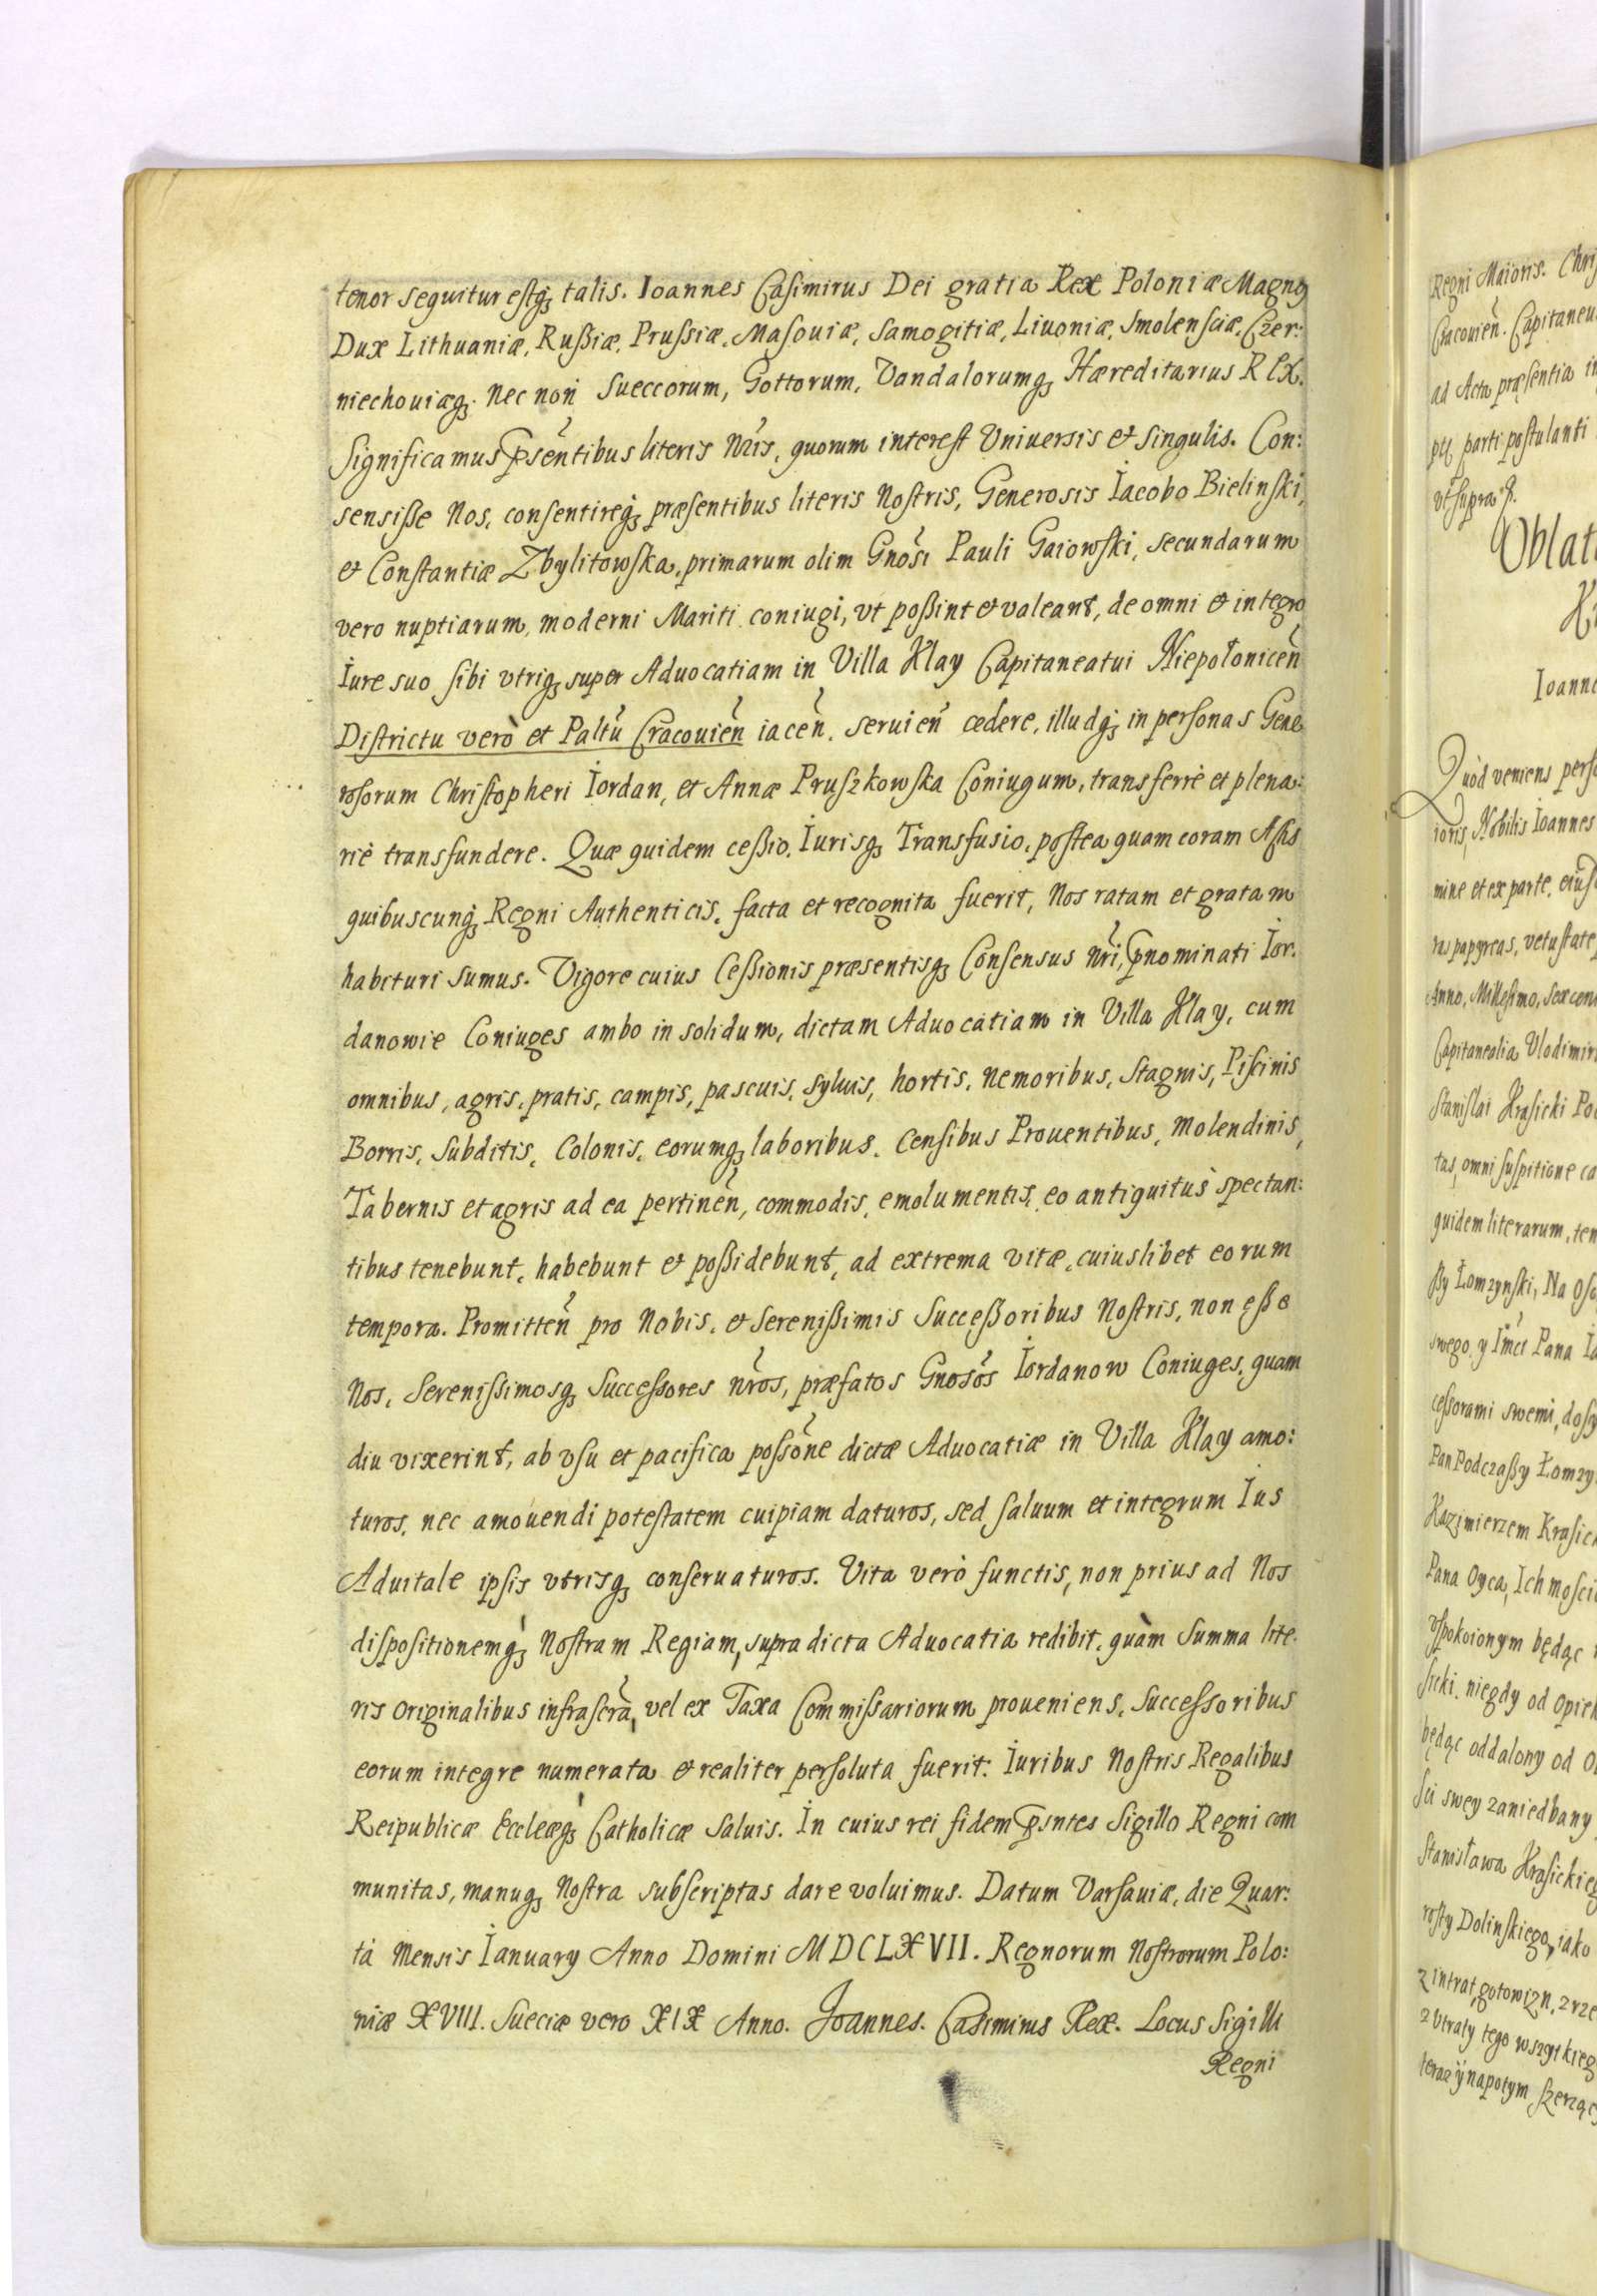 tenor sequitur estq₃ talis. Ioannes Casimirus Dei gratia Rex Poloniæ Magnq
Dux Lithuaniæ, Rußiæ, Prussiæ, Masouiæ, Samogitiæ, Liuoniæ, Smolensciæ, Czer:
niechouiæq₃. Nec non Sueccorum, Gottorum, Vandalorumq₃ Hæreditarius Rex.
Significamus p̃sẽntibus literis Nr̃is, quorum interest Vniuersis et Singulis. Con:
sensiße Nos, consentireq₃ præsentibus literis Nostris, Generosis Iacobo Bielinski,
et Constantiæ Zbylitowska, primarum olim Gnõsi Pauli Gaiowski, secundarum
vero nuptiarum, moderni Mariti coniugi, vt poßint et valeant, de omni et integro
Iure suo sibi vtriq₃ super Aduocatiam in Villa Klay Capitaneatui Niepołonicen̄
Districtu verò et Paltũ Cracouien̄ iacen̄. seruien̄ cedere, illudq₃ in personas Gene
rosorum Christopheri Iordan, et Annæ Pruszkowska Coniugum, transferrè et plena:
riè transfundere. Quæ quidem ceßio, Iurisq₃ Transfusio, postea quam coram Actis
quibuscunq₃ Regni Authenticis, facta et recognita fuerit, Nos ratam et gratam
habituri sumus. Vigore cuius Ceßionis præsentisq₃ Consensus nr̃i, p̃nominati Ior.
danowie Coniuges ambo in solidum, dictam Aduocatiam in Villa Klay, cum
omnibus, agris, pratis, campis, pascuis, syluis, hortis, nemoribus, Stagnis, Piscinis
Borris, Subditis, Colonis, eorumq₃ laboribus, Censibus Prouentibus, Molendinis,
Tabernis et agris ad ea pertinen̄, commodis, emolumentis, eo antiquitùs spectan:
tibus tenebunt, habebunt et poßidebunt, ad extrema vitæ, cuiuslibet eorum
tempora. Promitten̄ pro Nobis, et Serenißimis Succeßoribus Nostris, non eße
Nos, Serenissimosq₃ Successores nr̃os, præfatos Gnosõs Iordanow Coniuges, quam
diu vixerint, ab vsu et pacifica possõne dictæ Aduocatiæ in Villa Klay amo:
turos, nec amouendi potestatem cuipiam daturos, sed saluum et integrum Ius
Aduitale ipsis vtrisq₃ conseruaturos. Vita verò functis, non prius ad Nos
dispositionemq₃ Nostram Regiam, supra dicta Aduocatia redibit, quàm Summa lite.
ris Originalibus infrascrã, vel ex Taxa Commissariorum proueniens, Successoribus
eorum integre numerata et realiter persoluta fuerit: Iuribus Nostris Regalibus
Reipublicæ Eccleæq₃ Catholicæ saluis. In cuius rei fidem p̃sntes Sigillo Regni com
munitas, manuq₃ Nostra subscriptas dare voluimus. Datum Varsauiæ, die Quar:
tà Mensis Ianuary Anno Domini MDCLXVII. Regnorum Nostrorum Polo:
niæ XVIII. Sueciæ vero XIX Anno. Joannes Casimirus Rex. Locus Sigilli
Regni
Regni Maioris. Chri
Cracouien̄. Capitaneu
ad Acta præsentia in
parti postulanti
vt supra
Oblat
Ioanne
Quòd veniens perso
ioris, Nobilis Ioannes
mine et ex parte,
ras papyreas, vetustate
Anno, Millesimo, Sexcen
Capitanealia Vlodimir
Stanislai Krasicki Po
tas, omni suspitione ca
quidem literarum, ten
ßy Łomzynski, Na
swego, y Imči Pana
cessorami swemi, dosy
Pan Podczaßy Łomzy
Kazimierzem Krasick
Pana Oyca, Ich mosci
vspokoionym będąc
sicki, niegdy od Opiek
będąc oddalony od
sci swey zaniedbany
Stanisława Krasickieg
rosty Dolinskiego, iako
z intrat, gotowizn, z rze
z Vtraty tego wszytkieg
teraz y napotym szerząc